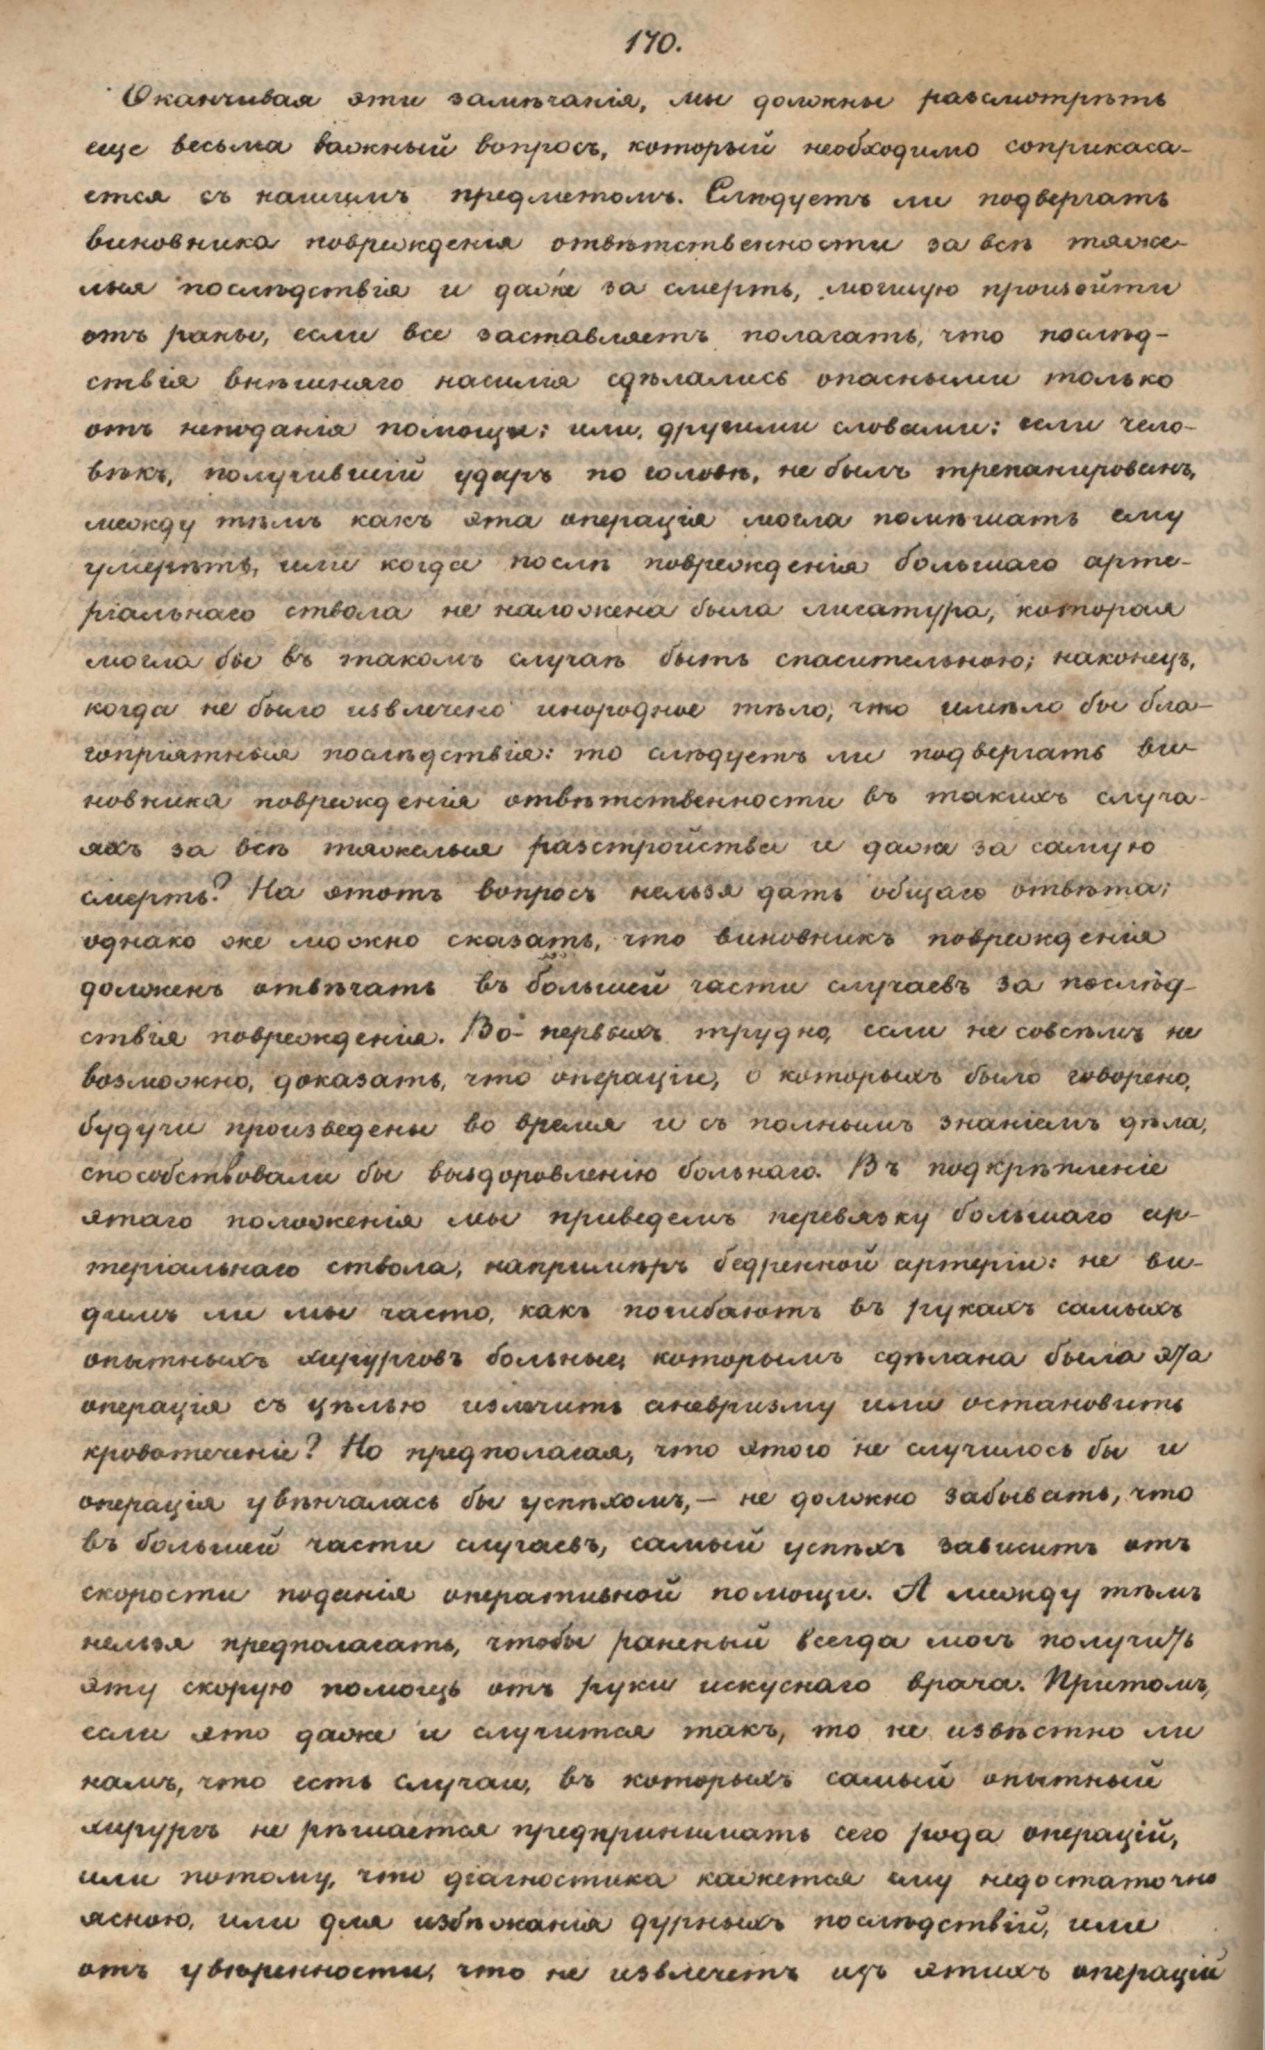 170.
Оканчивая эти замѣчанія, мы должны разсмотрѣть
еще весьма важный вопросъ, который необходимо соприкаса-
ется съ нашимъ предметомъ. Слѣдуетъ ли подвергать
виновника поврежденія отвѣтственности за всѣ тяже-
лыя послѣдствія и даже за смерть, могшую произойти
отъ раны, если все заставляетъ полагать, что послѣд-
ствія внѣшняго насилія сдѣлались опасными только
отъ неподанія помощи; или, другими словами: если чело-
вѣкъ, получившій ударъ по головѣ, не былъ трепанированъ,
между тѣмъ какъ эта операція могла помѣшать ему
умереть, или когда послѣ поврежденія большаго арте-
ріальнаго ствола не наложена была лигатура, которая
могла бы въ такомъ случаѣ быть спасительною; наконецъ,
когда не было извлечено инородное тѣло, что имѣло бы бла-
гопріятныя послѣдствія: то слѣдуетъ ли подвергать ви-
новника поврежденія отвѣтственности въ такихъ случа-
яхъ за всѣ тяжелыя разстройства и даже за самую
смерть? На этотъ вопросъ нельзя дать общаго отвѣта;
однако же можно сказать, что виновникъ поврежденія
долженъ отвѣчать въ большей части случаевъ за послѣд-
ствія поврежденія. Во-первыхъ трудно, если не совсѣмъ не
возможно, доказать, что операціи, о которыхъ было говорено,
будучи произведены во время и съ полнымъ знаніемъ дѣла,
способствовали бы выздоровленію больнаго. Въ подкрѣпленіе
этаго положенія мы приведемъ перевязку большаго ар-
теріальнаго ствола, напримѣръ бедренной артеріи: не ви-
димъ ли мы часто, какъ погибаютъ въ рукахъ самыхъ
опытныхъ хирурговъ больные, которымъ сдѣлана была эта
операція съ цѣлью излечить аневризму или остановить
кровотеченіе? Но предполагая, что этого не случилось бы и
операція увѣнчалась бы успѣхомъ, — не должно забывать, что
въ большей части случаевъ, самый успѣхъ зависитъ отъ
скорости поданія оперативной помощи. А между тѣмъ
нельзя предполагать, чтобы раненый всегда могъ получить
эту скорую помощь отъ руки искуснаго врача. Притомъ,
если это даже и случится такъ, то не извѣстно ли
намъ, что есть случаи, въ которыхъ самый опытный
хирургъ не рѣшается предпринимать сего рода операцій,
или потому, что діагностика кажется ему недостаточно
ясною, или для избѣжанія дурныхъ послѣдствій, или
отъ увѣренности, что не извлечетъ изъ этихъ операцій